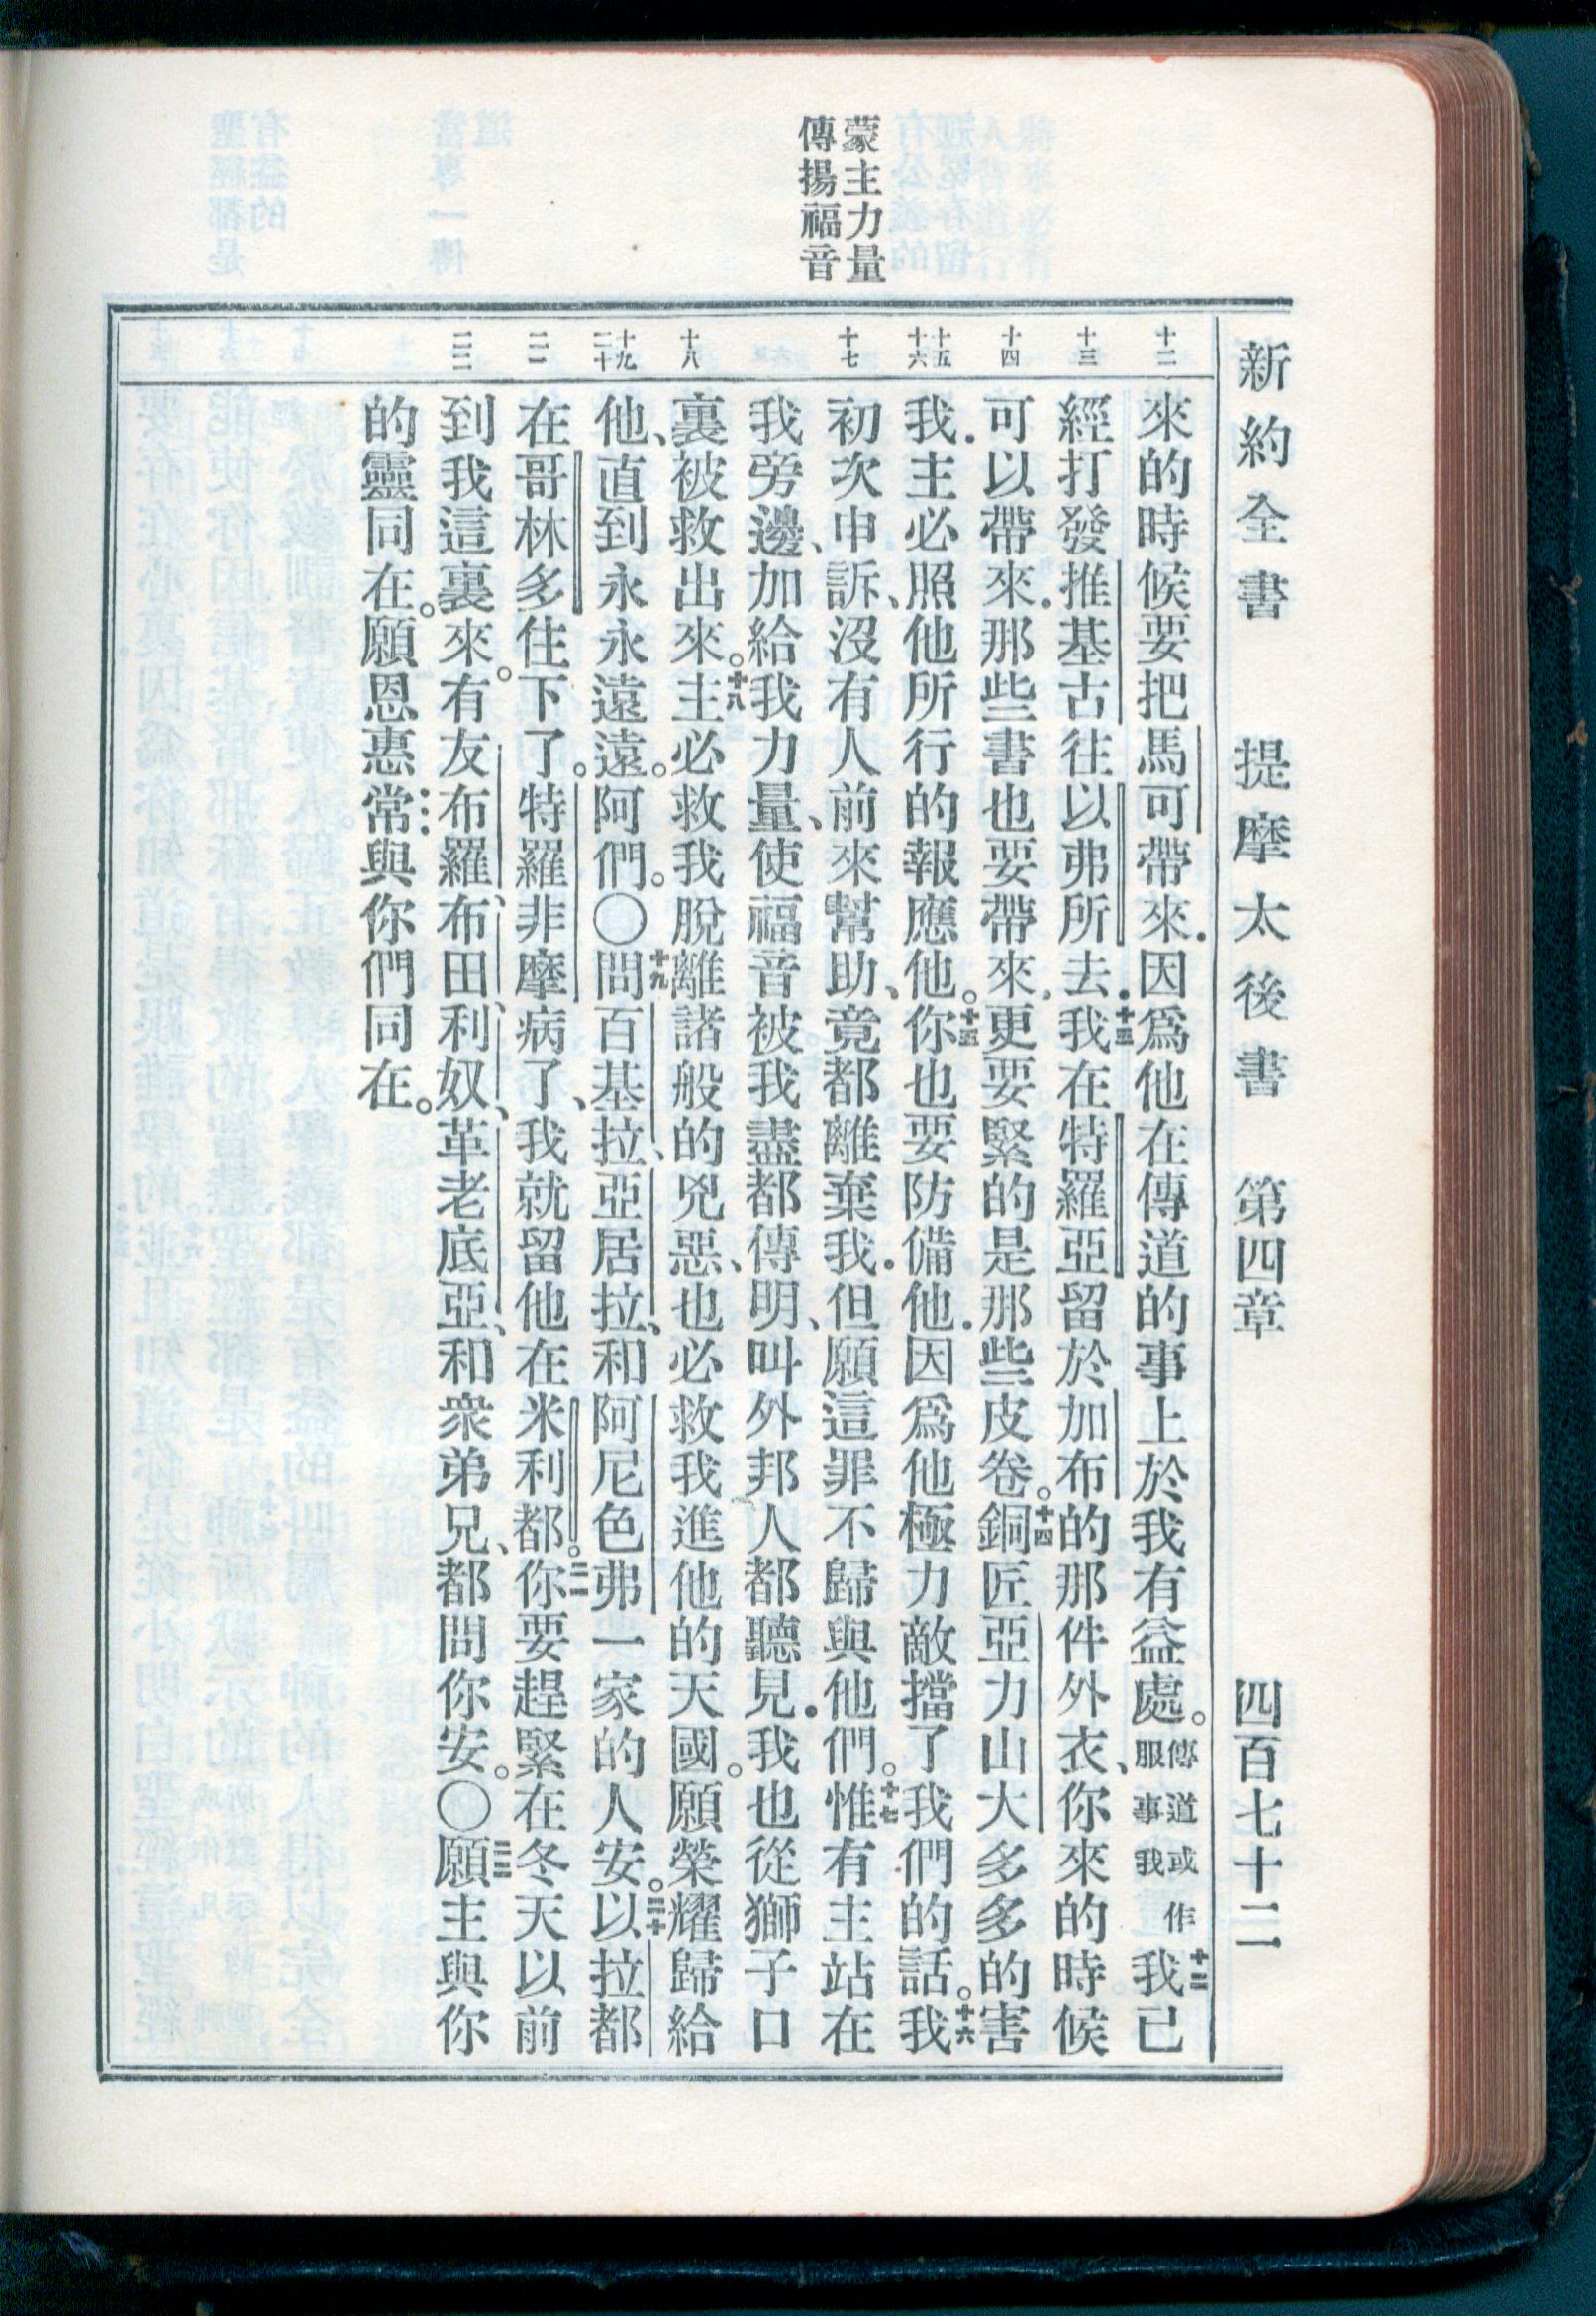 新約全書 提摩太後書 第四章 四百七十二
蒙主力量
傳揚福音
十二
十三
十四
十五
十六
十七
十八
十九
二十
二一
二二
來的時候要把馬可帶來．因爲他在傳道的事上於我有益處。傳道或作服事我十二我已
經打發推基古往以弗所去．十三我在特羅亞留於加布的那件外衣、你來的時候
可以帶來．那些書也要帶來．更要緊的是那些皮卷。十四銅匠亞力山大多多的害
我．主必照他所行的報應他。十五你也要防備他．因爲他極力敵擋了我們的話。十六我
初次申訴、沒有人前來幫助、竟都離棄我．但願這罪不歸與他們。十七惟有主站在
我旁邊、加給我力量、使福音被我盡都傳明、叫外邦人都聽見．我也從獅子口
裏被救出來。十八主必救我脫離諸般的兇惡、也必救我進他的天國。願榮耀歸給
他、直到永永遠遠。阿們。〇十九問百基拉、亞居拉、和阿尼色弗一家的人安。二十以拉都
在哥林多住下了。特羅非摩病了、我就留他在米利都。二一你要趕緊在冬天以前
到我這裏來。有友布羅、布田、利奴、革老底亞、和衆弟兄、都問你安。〇二二願主與你
的靈同在。願恩惠常與你們同在。